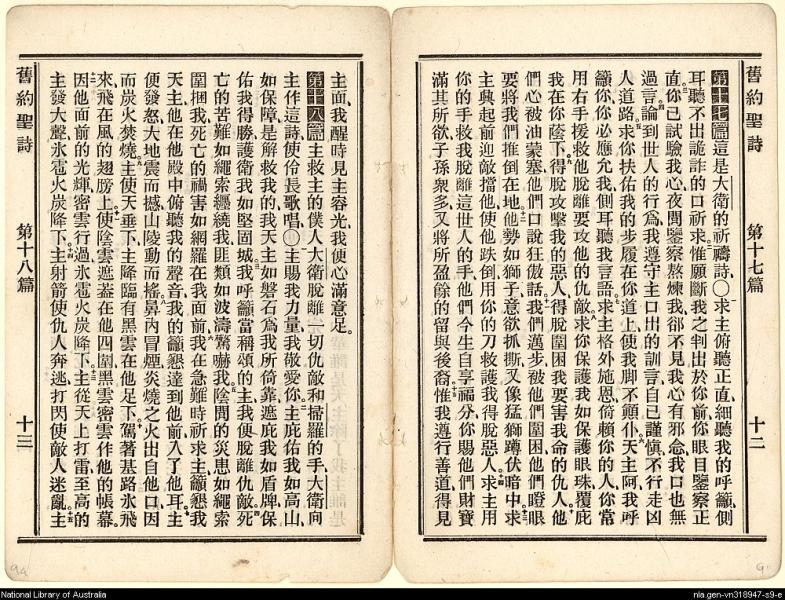 舊約聖詩 第十七篇 十二
第十七篇這是大衛的祈禱詩〇求主俯聽正直、細聽我的呼籲、側
耳聽不出詭詐的口祈求、惟願斷我之判、出於你前、你眼目鑒察正
直、你已試驗我心、夜間鑒察、熬煉我、卻不見我心有邪念、我口也無
過言、論到世人的行為、我遵守主口出的訓言、自己謹愼、不行走凶
人道路、求你扶佑我的步履、在你道上、使我脚不顚仆、天主阿、我呼
籲你、你必應允我、側耳聽我言語、求主格外施恩、倚賴你的人、你常
用右手援救他脫離要攻他的仇敵、求你保護我、如保護眼珠、覆庇
我在你蔭下、得脫攻擊我的惡人、得脫圍困我要害我命的仇人、他
們心被油蒙塞、他們口說狂傲話、我們邁步被他們圍困、他們瞪眼
要將我們推倒在地、他勢如獅子、意欲抓撕、又像猛獅蹲伏暗中、求
主興起、前迎敵擋他、使他跌倒、用你的刀救護我得脫惡人、求主用
你的手救我脫離這世人的手、他們今生自享福分、你賜他們財寶
滿其所欲、子孫衆多、又將所盈餘的留與後裔、惟我遵行善道、得見
舊約聖詩 第十八篇 十三
主面、我醒時見主容光、我便心滿意足。
第十八篇主救主的僕人大衛脫離一切仇敵和掃羅的手、大衛向
主作這詩、使伶長歌唱〇主賜我力量、我敬愛你、主庇佑我如高山、
如保障、是解救我的、我天主如磐石、爲我所倚靠、遮庇我如盾牌、保
佑我得勝、護衛我如堅固城、我呼籲當稱頌的主、我便脫離仇敵、死
亡的苦難如繩索纏繞我、匪類如波濤驚嚇我、陰間的災患如繩索
圍捆我、死亡的禍害如網羅在我面前、我在急難時祈求主、籲懇我
天主、他在他殿中俯聽我的聲音、我的籲懇達到他前、入了他耳、主
便發怒、大地震而撼、山陵動而搖、鼻內冒煙、炎燒之火出自他口、因
而炭火焚燒、主使天垂下、主降臨有黑雲在他足下、駕著基路氷飛
來、飛在風的翅膀上、使陰雲遮蓋在他四圍、黑雲密雲作他的帳幕、
因他面前的光輝、密雲行過、氷雹火炭降下、主從天上打雷、至高的
主發大聲、氷雹火炭降下、主射箭使仇人奔逃、打閃使敵人迷亂、主
9a
9
National Library of Australia
nla.gen-vn318947-s9-e